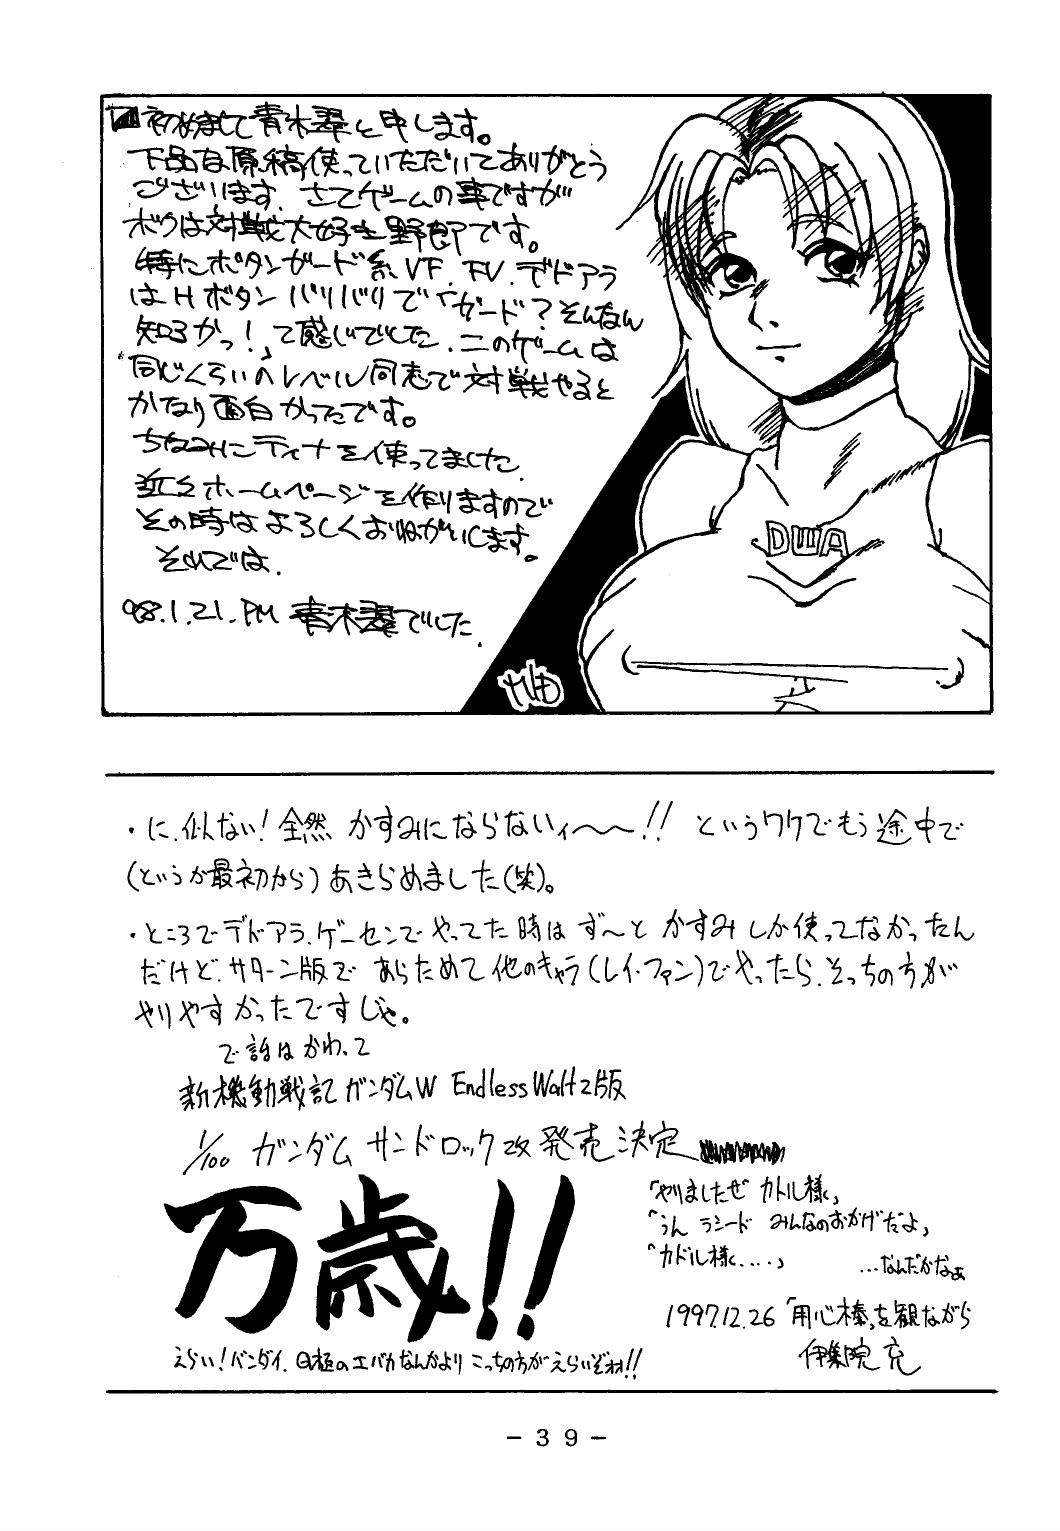 初めまして青木翠と申します。
下品な原稿使っていただいてありがとう
ございます。さてゲームの事ですが
ボクは対戦大好き野郎です。
特にボタンガード系VF.FV.デドアラ
はHボタンバリバリで「ガード?そんなん
知るかっ!」て感じでした.このゲームは
同じくらいのレベル同志で対戦やると
かなり面白かったです。
ちなみにティナを使ってました.
近々ホームページを作りますので
その時はよろしくおねがいします。
それでは.
'98.1.21.PM 青木翠でした.
DWA
・に、似ない!全然かすみにならないィ〜〜!! というワケでもう途中で
(というか最初から)あきらめました(笑)。
・ところでデドアラ、ゲーセンでやってた時はず〜とかすみしか使ってなかったん
だけど、サターン版であらためて他のキャラ(レイ・ファン)でやったら、そっちの方が
やりやすかったですじゃ。
で話はかわって
新機動戦記ガンダムW Endless Waltz版
1/100 ガンダムサンドロック改発売決定
万歳!!
「やりましたぜ カトル様」
「うん ラシード みんなのおかげだよ」
「カトル様....」
...なんだかなぁ
1997.12.26 「用心棒」を観ながら
伊集院 充
えらい!バンダイ、
なんかより こっちの方がえらいぞォォ!!
- 39 -